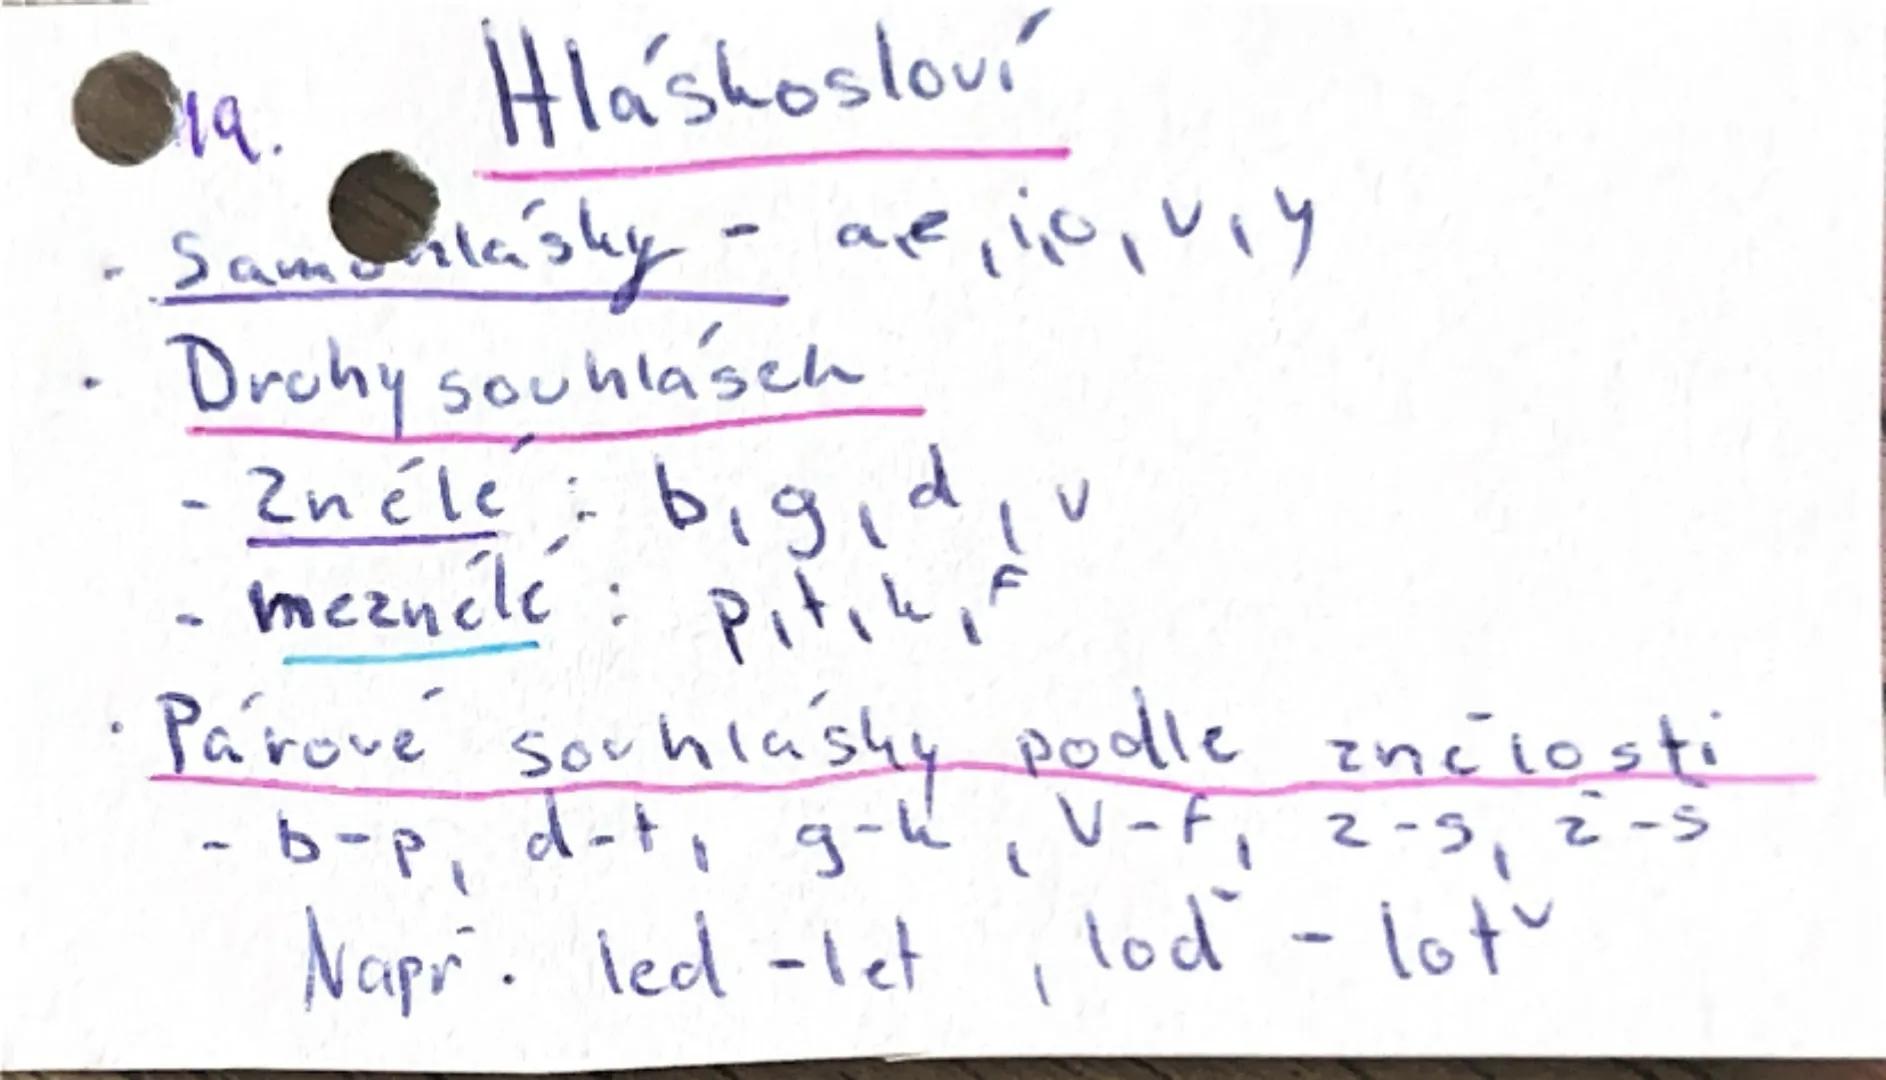 19. Hláskosloví
· Samohlásky - a,e,i,o,u,y
· Druhy souhlásek
- Znělé : b,g,d,v
- neznělé : p,t,k,f
· Párové souhlásky podle znělosti
- b-p, d-t, g-k, v-f, z-s, ž-š
Např. led - let, loď - loť